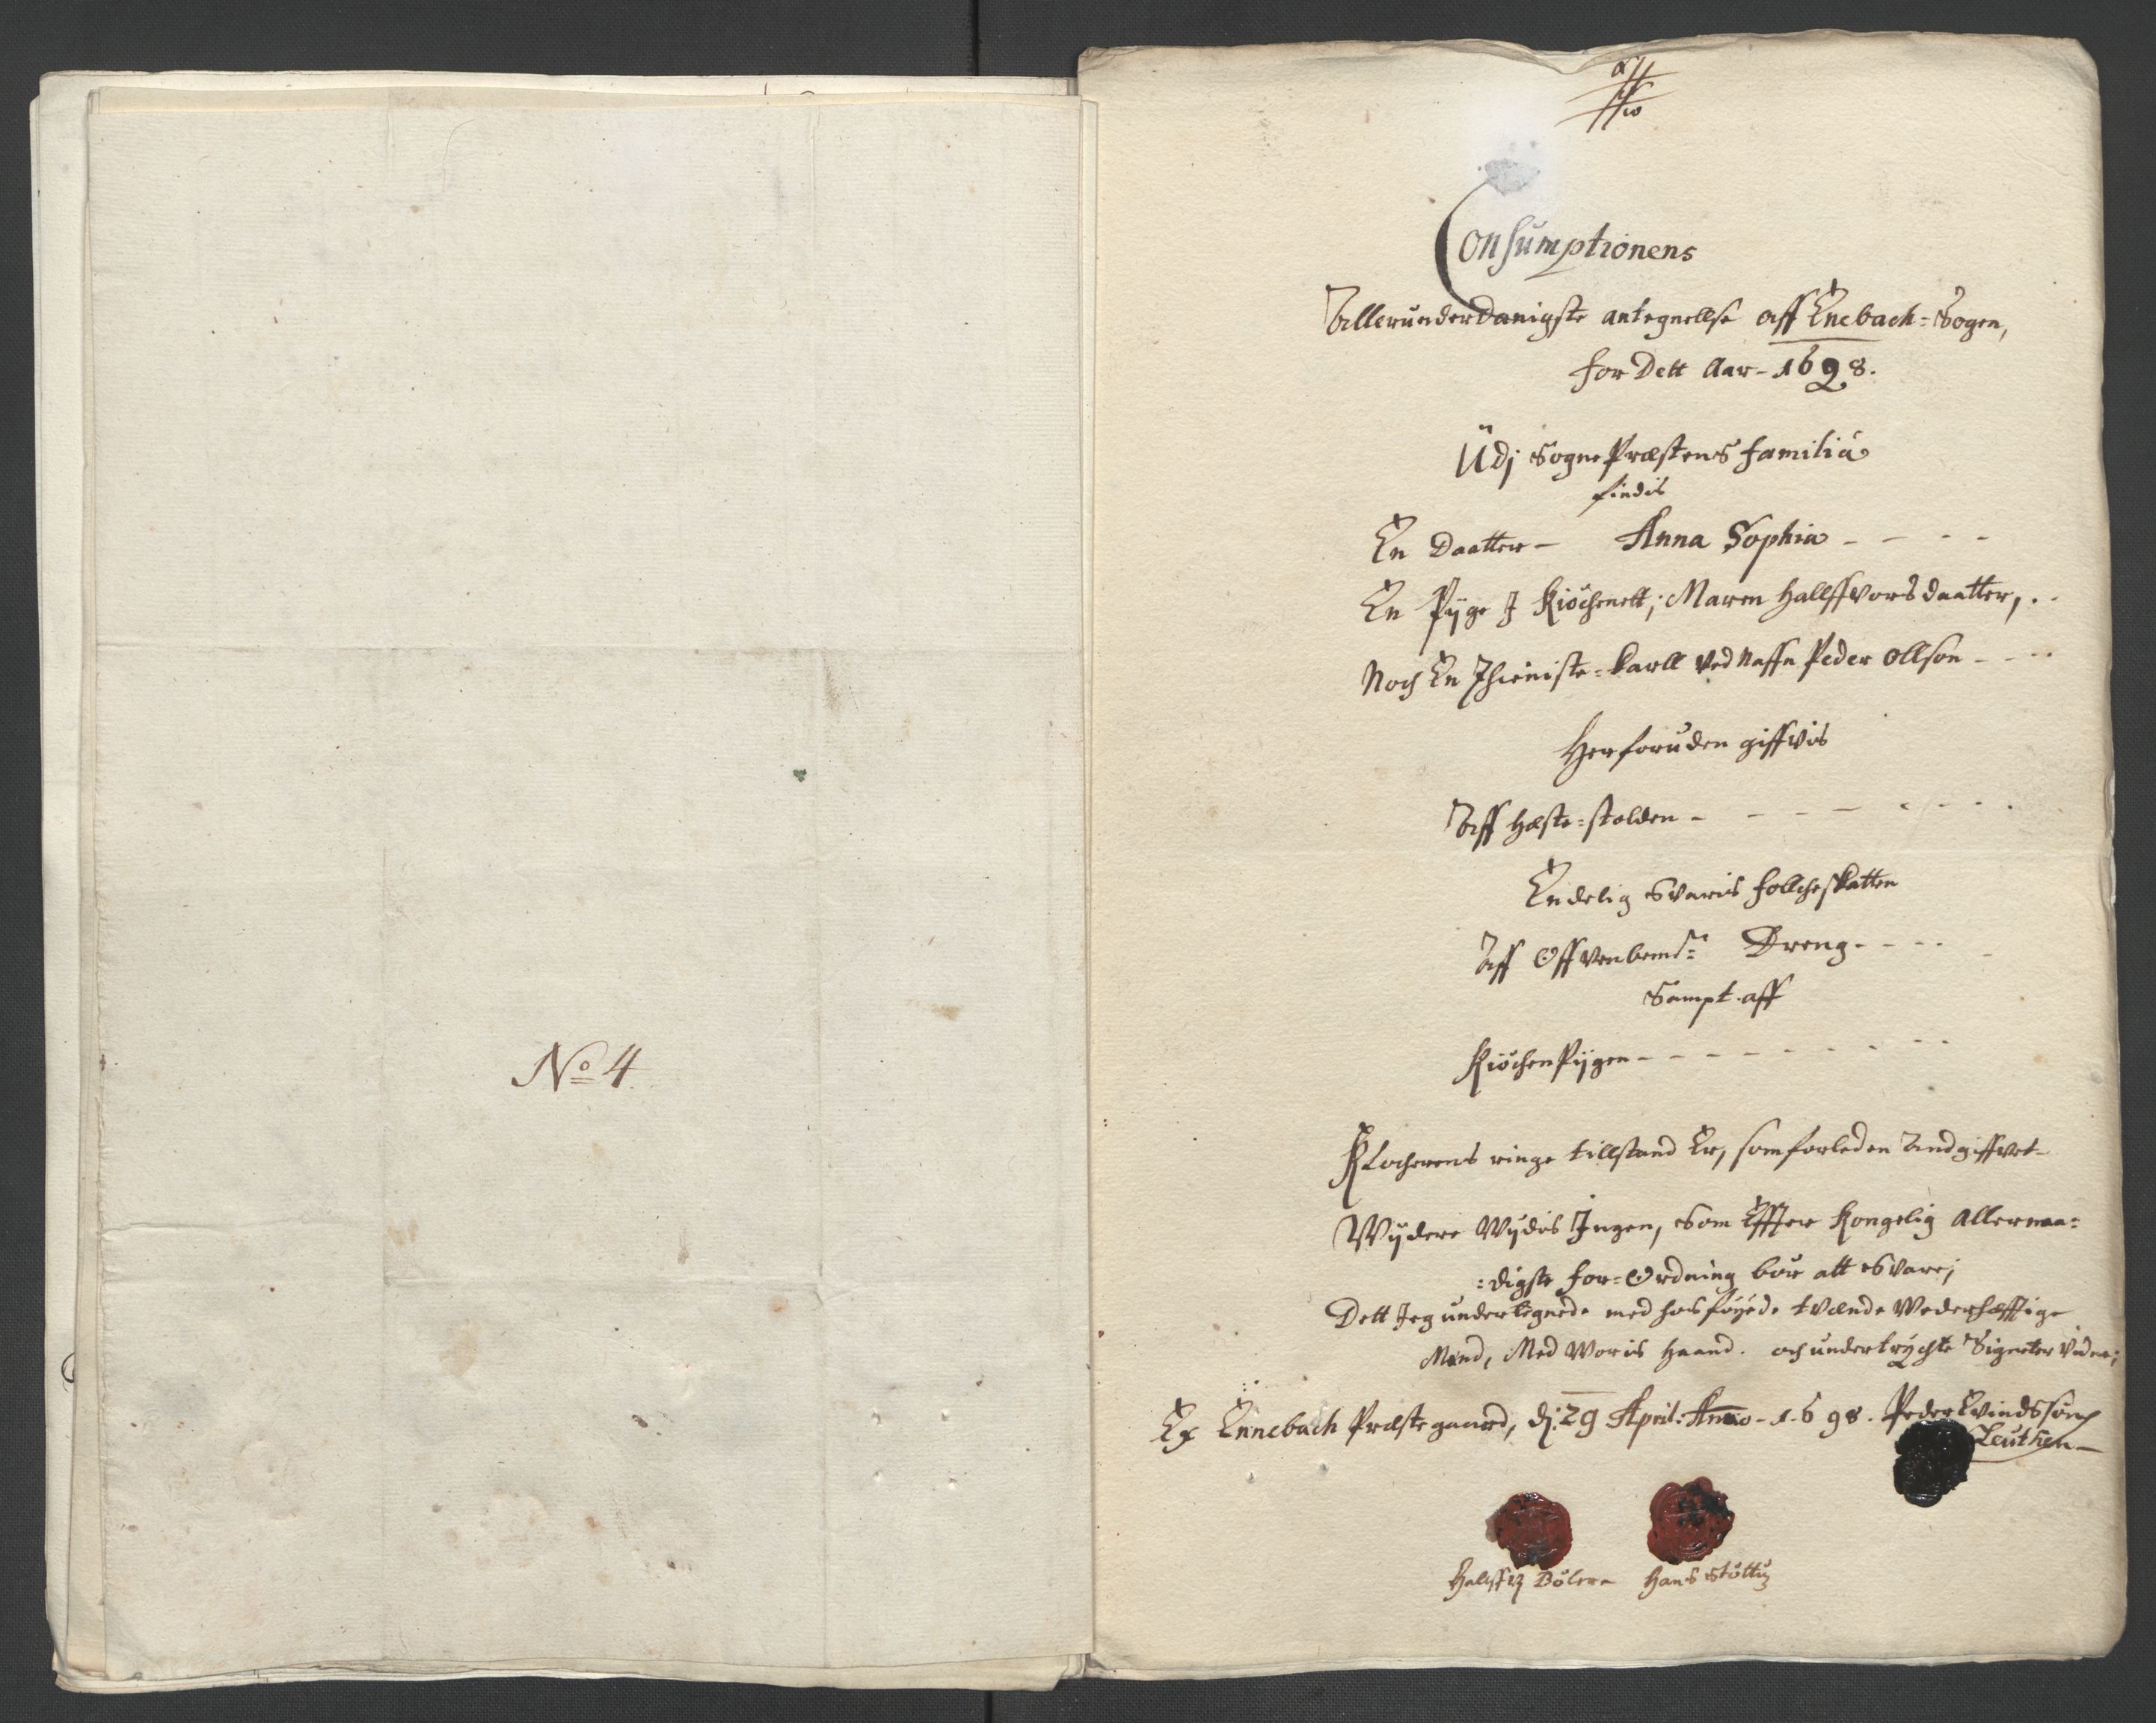 No 4
Consumptionens
Allerunderdanigste antegnellse aff Enebach=Sogen,
for Dett Aar - 1698.
Udj Sogne Præstens familiâ
findis
En Daatter - Anna Sophia - - - -
En Pige J Kiöchenett, Maren Hallffvorsdaatter, . .
Noch En Thieniste=Karll ved Naffn Peder Ollsön - - - -
Herforuden giffvis
Aff Hæste=stalden - - - - - - - -
Endelig Svaris follcheskatten
Aff Offvenbemte Dreng - - - -
Sampt aff
Kiöchen Pijgen - - - - - - - - -
Klocherens ringe tillstand Er, som forleden Andgiffvet
Wijdere Wijdes Jngen, Som Effter Kongelig Allernaa=
:digste for=Ordning bör att Svare;
Dett Jeg undertegnede med hosföyede tvænde Wederhæfftige
Mænd, Med Woris Haand. och undertrychte Signeter Vidner;
Ex Ennebach Præstegaard, dj: 29 April: Anno - 1698. Peder Evindssön
Leuthen
Hallff Bölere Hans Stöttu